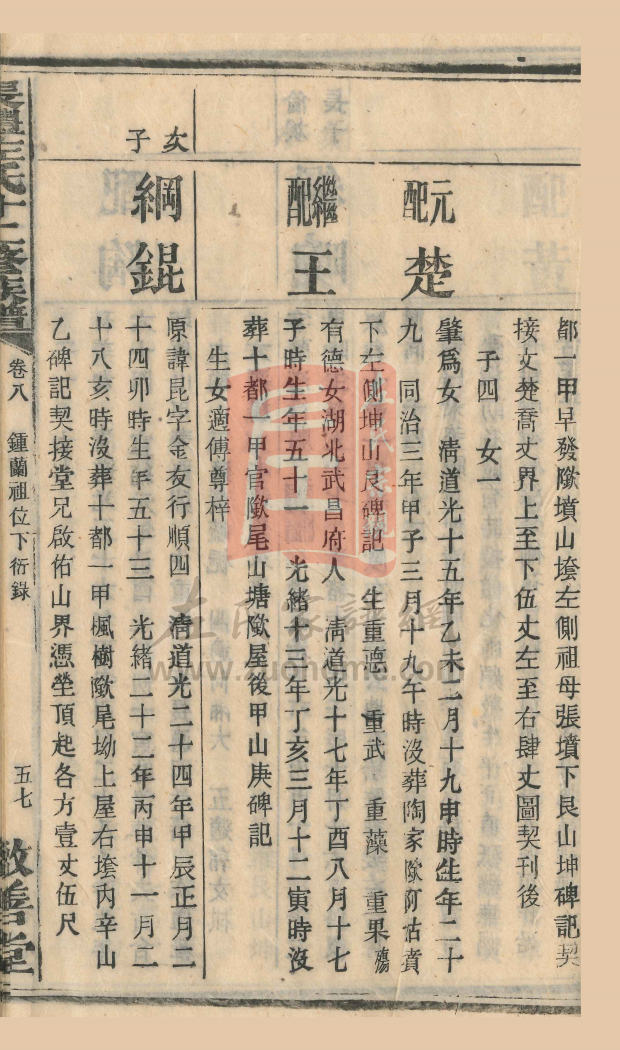 都一甲早發歘墳山塋左側祖母張墳下艮山坤碑記契
接文楚喬丈界上至下伍丈左至右肆丈圖契刊後
子四　女一
元配
楚
肇爲女　清道光十五年乙未二月十九申時生年二十
九　同治三年甲子三月十九午時沒葬陶家歘
下左側坤山艮碑記　生重德　重武　重藻　重果殤
繼配
王
有德女湖北武昌府人　清道光十七年丁酉八月十七
子時生年五十一　光緒十三年丁亥三月十二寅時沒
葬十都一甲官歘尾山塘歘屋後甲山庚碑記
生女適傅尊梓
次子
綱錕
原諱昆字金友行順四　清道光二十四年甲辰正月二
十四卯時生年五十三　光緒二十二年丙申十一月二
十八亥時沒葬十都一甲楓樹歘尾坳上屋右塋內辛山
乙碑記契接堂兄啟佑山界憑塋頂起各方壹丈伍尺
左氏十二修族譜
卷八　鍾蘭祖位下衍錄
五七
敬善堂
左氏家譜網
www.zuohome.com